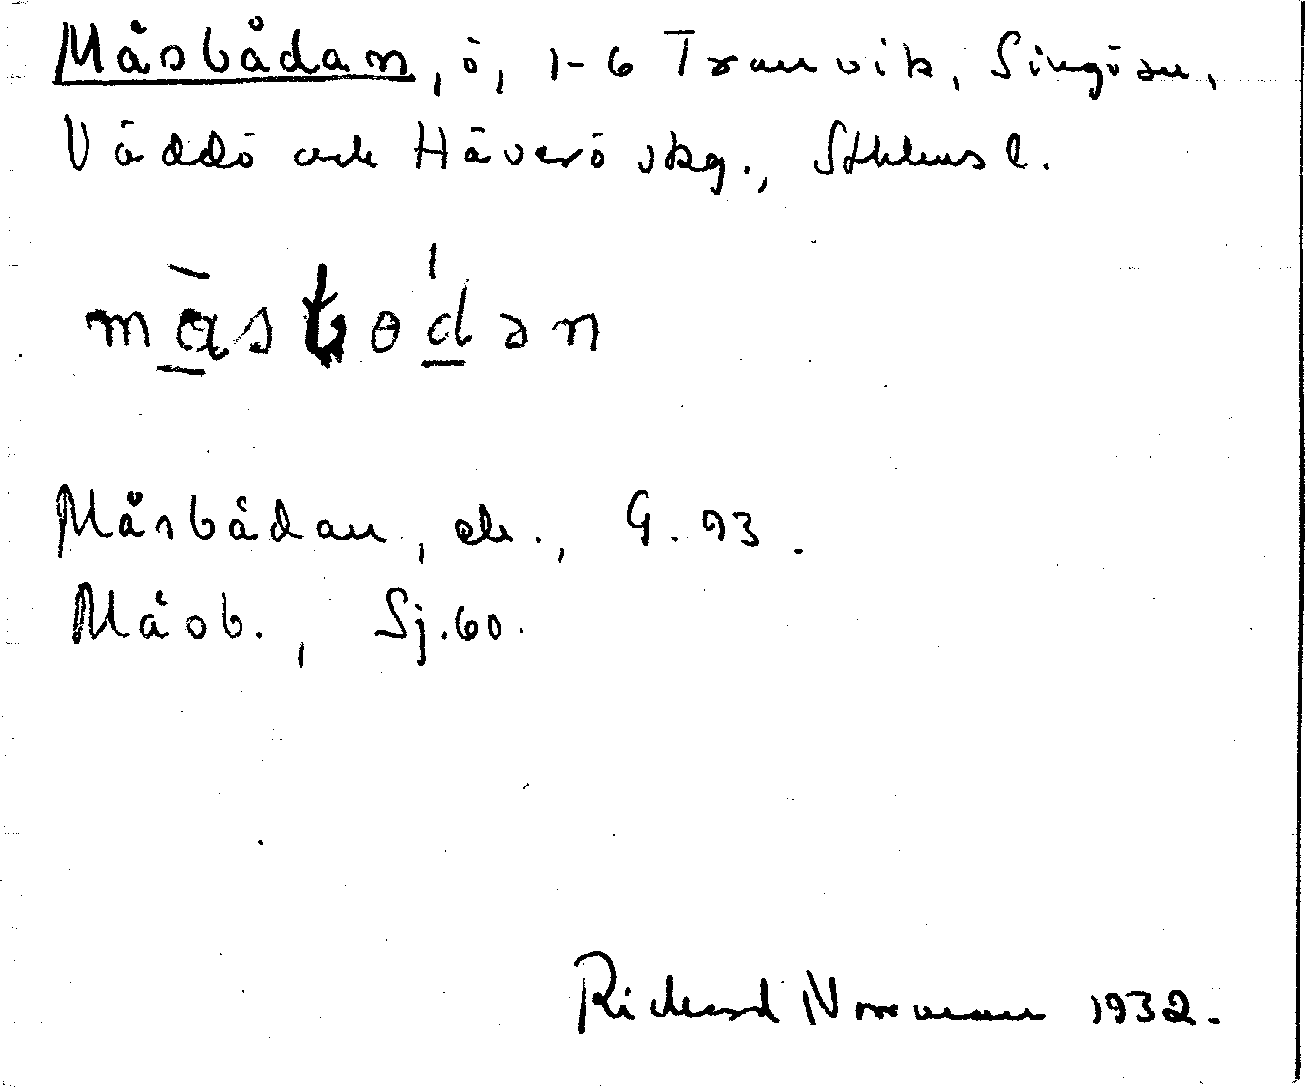 Måsbådan, ö, 1-6 Tranvik, Singö sn,
Väddö och Häverö skg., Sthlms l.
Måsbådan, ek., G. 93.
Måsb., Sj. 60.
Rickard Norrman 1932.